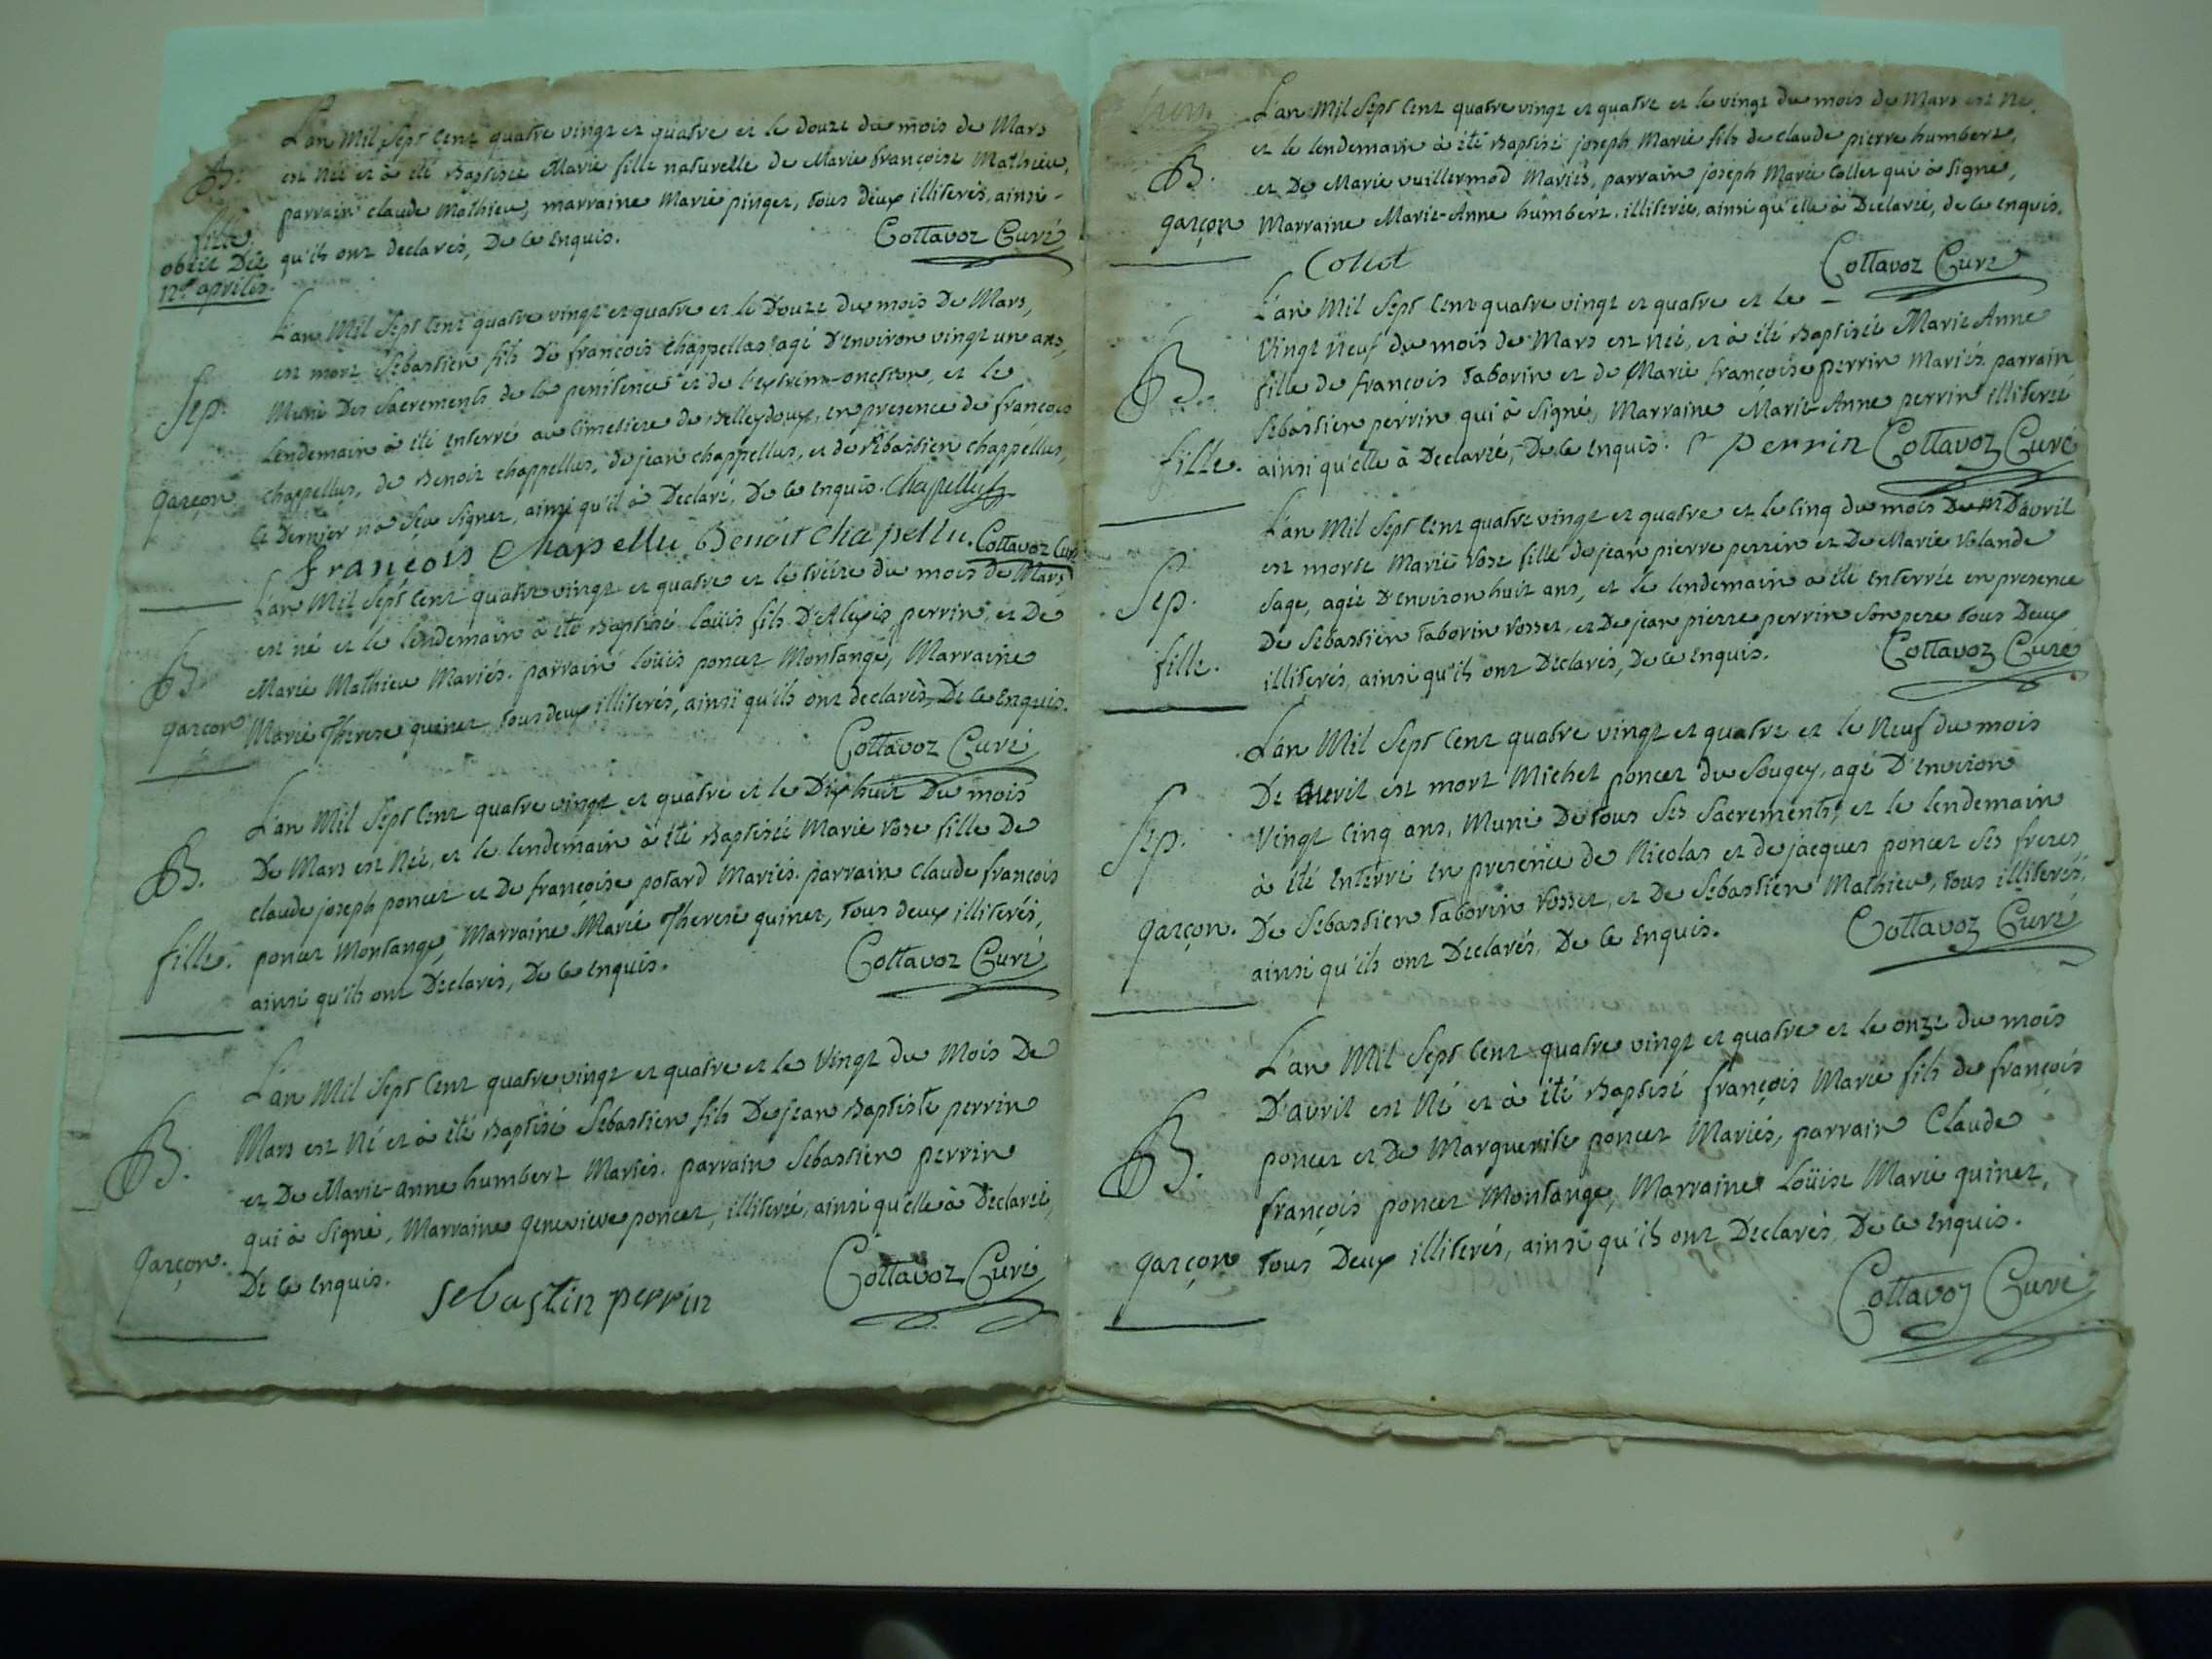 L'an Mil Sept Cent quatre vingt et quatre et le douze du mois de Mars
B. est Née et à été Baptisée Marie fille naturelle de Marie françoise Mathieu,
parrain claude Mathieu, marraine Marie pinget, tous deux illiterés, ainsi -
fille. qu'ils ont declarés, De ce Enquis. Cottavoz Curé
obiit Die
12a aprilis.
L'an Mil Sept Cent quatre vingt et quatre et le Douze du mois De Mars,
est mort Sébastien fils De françois Chappellus agé D'environ vingt un ans,
Sep. Muni Des Sacrements de la penitence et de l'extrême-onction, et le
Lendemain à été Enterré au Cimetiere de Belleydoux, en presence de françois
garçon chappellus, de Benoit chappellus, de jean chappellus, et de Sébastien chappellus,
Ce Dernier n'a Sçu Signer, ainsi qu'il à Declaré, De ce Enquis. Chapellus
françois Chapellu Benoit Chapellu. Cottavoz Curé
L'an Mil Sept Cent quatre vingt et quatre et le treize du mois de Mars
est né et le lendemain à été Baptisé Loüis fils D'Alexis perrin, et De
B. Marie Mathieu Mariés. parrain Loüis poncet Montange, Marraine
garçon Marie Therese quinet tous deux illiterés, ainsi qu'ils ont declarés, De ce Enquis.
Cottavoz Curé
L'an Mil Sept Cent quatre vingt et quatre et le Dix huit Du mois
De Mars est Née, et le lendemain à été Baptisée Marie Rose fille De
B. claude joseph poncet et De françoise potard Mariés. parrain Claude françois
fille. poncet Montange, Marraine Marie Therese quinet, tous deux illiterés,
ainsi qu'ils ont Declarés, De ce Enquis. Cottavoz Curé
L'an Mil Sept Cent quatre vingt et quatre et le Vingt du Mois De
Mars est Né et à été Baptisé Sébastien fils De jean Baptiste perrin
B. et De Marie-anne humbert Mariés. parrain Sébastien perrin
qui à Signé, Marraine genevieve poncet, illiterée, ainsi qu'elle à Declaré,
garçon. De ce Enquis. sebastin perrin Cottavoz Curé
L'an Mil Sept Cent quatre vingt et quatre et le vingt du mois de Mars est Né
et le lendemain à été Baptisé joseph Marie fils de claude pierre humbert,
B. et De Marie vuillermod Mariés, parrain joseph Marie Collet qui à Signé,
garçon Marraine Marie-Anne humbert, illiterée, ainsi qu'elle à Declarée, de ce Enquis.
Collet Cottavoz Curé
L'an Mil Sept Cent quatre vingt et quatre et Le -
Vingt Neuf du mois de Mars est Née, et à été Baptisée Marie Anne
B. fille de françois taborin et de Marie françoise perrin Mariés. parrain
Sébastien perrin qui à Signé, Marraine Marie-Anne perrin illiterée
fille. ainsi qu'elle à Declarée, De ce Enquis. S perrin Cottavoz Curé
L'an Mil Sept Cent quatre vingt et quatre et le Cinq du mois D'avril
est morte Marie Rose fille de jean pierre perrin et De Marie Rolande
Sep. Sage, agée D'environ huit ans, et le lendemain a été Enterrée en presence
De Sébastien taborin Rosset, et De jean pierre perrin Son pere tous Deux
fille. illiterés, ainsi qu'ils ont Declarés, De ce Enquis. Cottavoz Curé
L'an Mil Sept Cent quatre vingt et quatre et le Neuf du mois
De avril est mort Michel poncet du Sougey, agé D'environ
Sep. Vingt Cinq ans, Muni De tous Ses Sacrements, et le lendemain
à été Enterré En presence de Nicolas et de jacques poncet Ses freres
garçon. De Sébastien taborin Rosset, et De Sébastien Mathieu, tous illiterés,
ainsi qu'ils ont Declarés, De ce Enquis. Cottavoz Curé
L'an Mil Sept Cent quatre vingt et quatre et le onze du mois
D'avril est Né et à été Baptisé françois Marie fils de françois
B. poncet et De Marguerite poncet Mariés, parrain Claude
françois poncet Montange, Marraine Loüise Marie quinet,
garçon tous Deux illiterés, ainsi qu'ils ont Declarés, De ce Enquis.
Cottavoz Curé